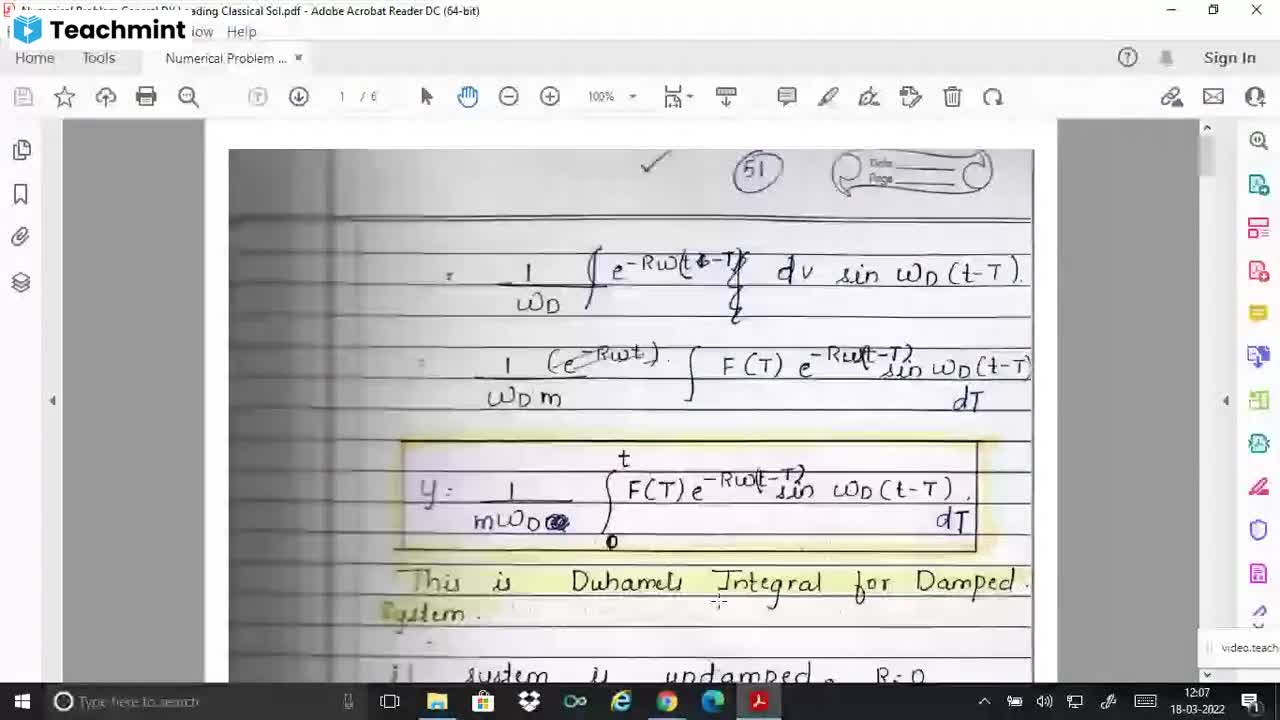 Numerical Problem General DY Loading Classical Sol.pdf - Adobe Acrobat Reader DC (64-bit)
Teachmint
Help
Home Tools Numerical Problem ... × Sign In
1 / 6 100%
51
Date
Page
= 1/ωD ∫ e^-Rω(t-T) dv sin ωD (t-T).
= 1/ωD m (e^-Rωt). ∫ F(T) e^-Rω(t-T) sin ωD (t-T) dT
y = 1/mωD ∫0^t F(T) e^-Rω(t-T) sin ωD (t-T). dT
This is Duhamels Integral for Damped
System.
if system is undamped. R=0
video.teach
Type here to search
12:07
18-03-2022